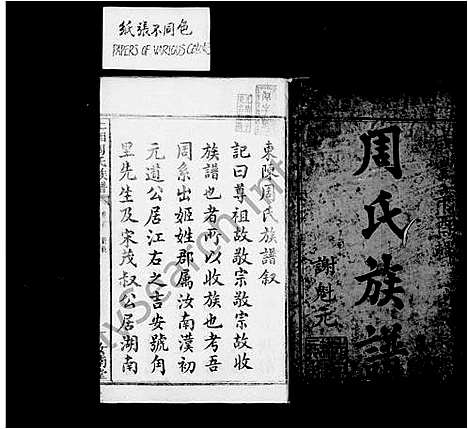 紙張不同色
PAPERS OF VARIOUS COLORS
周氏族譜
謝魁元
東陳周氏族譜叙
記曰尊祖故敬宗敬宗故收
族譜也者所以收族也考吾
周系出姬姓郡属汝南漢初
元道公居江右之吉安號角
里先生及宋茂叔公居湖南